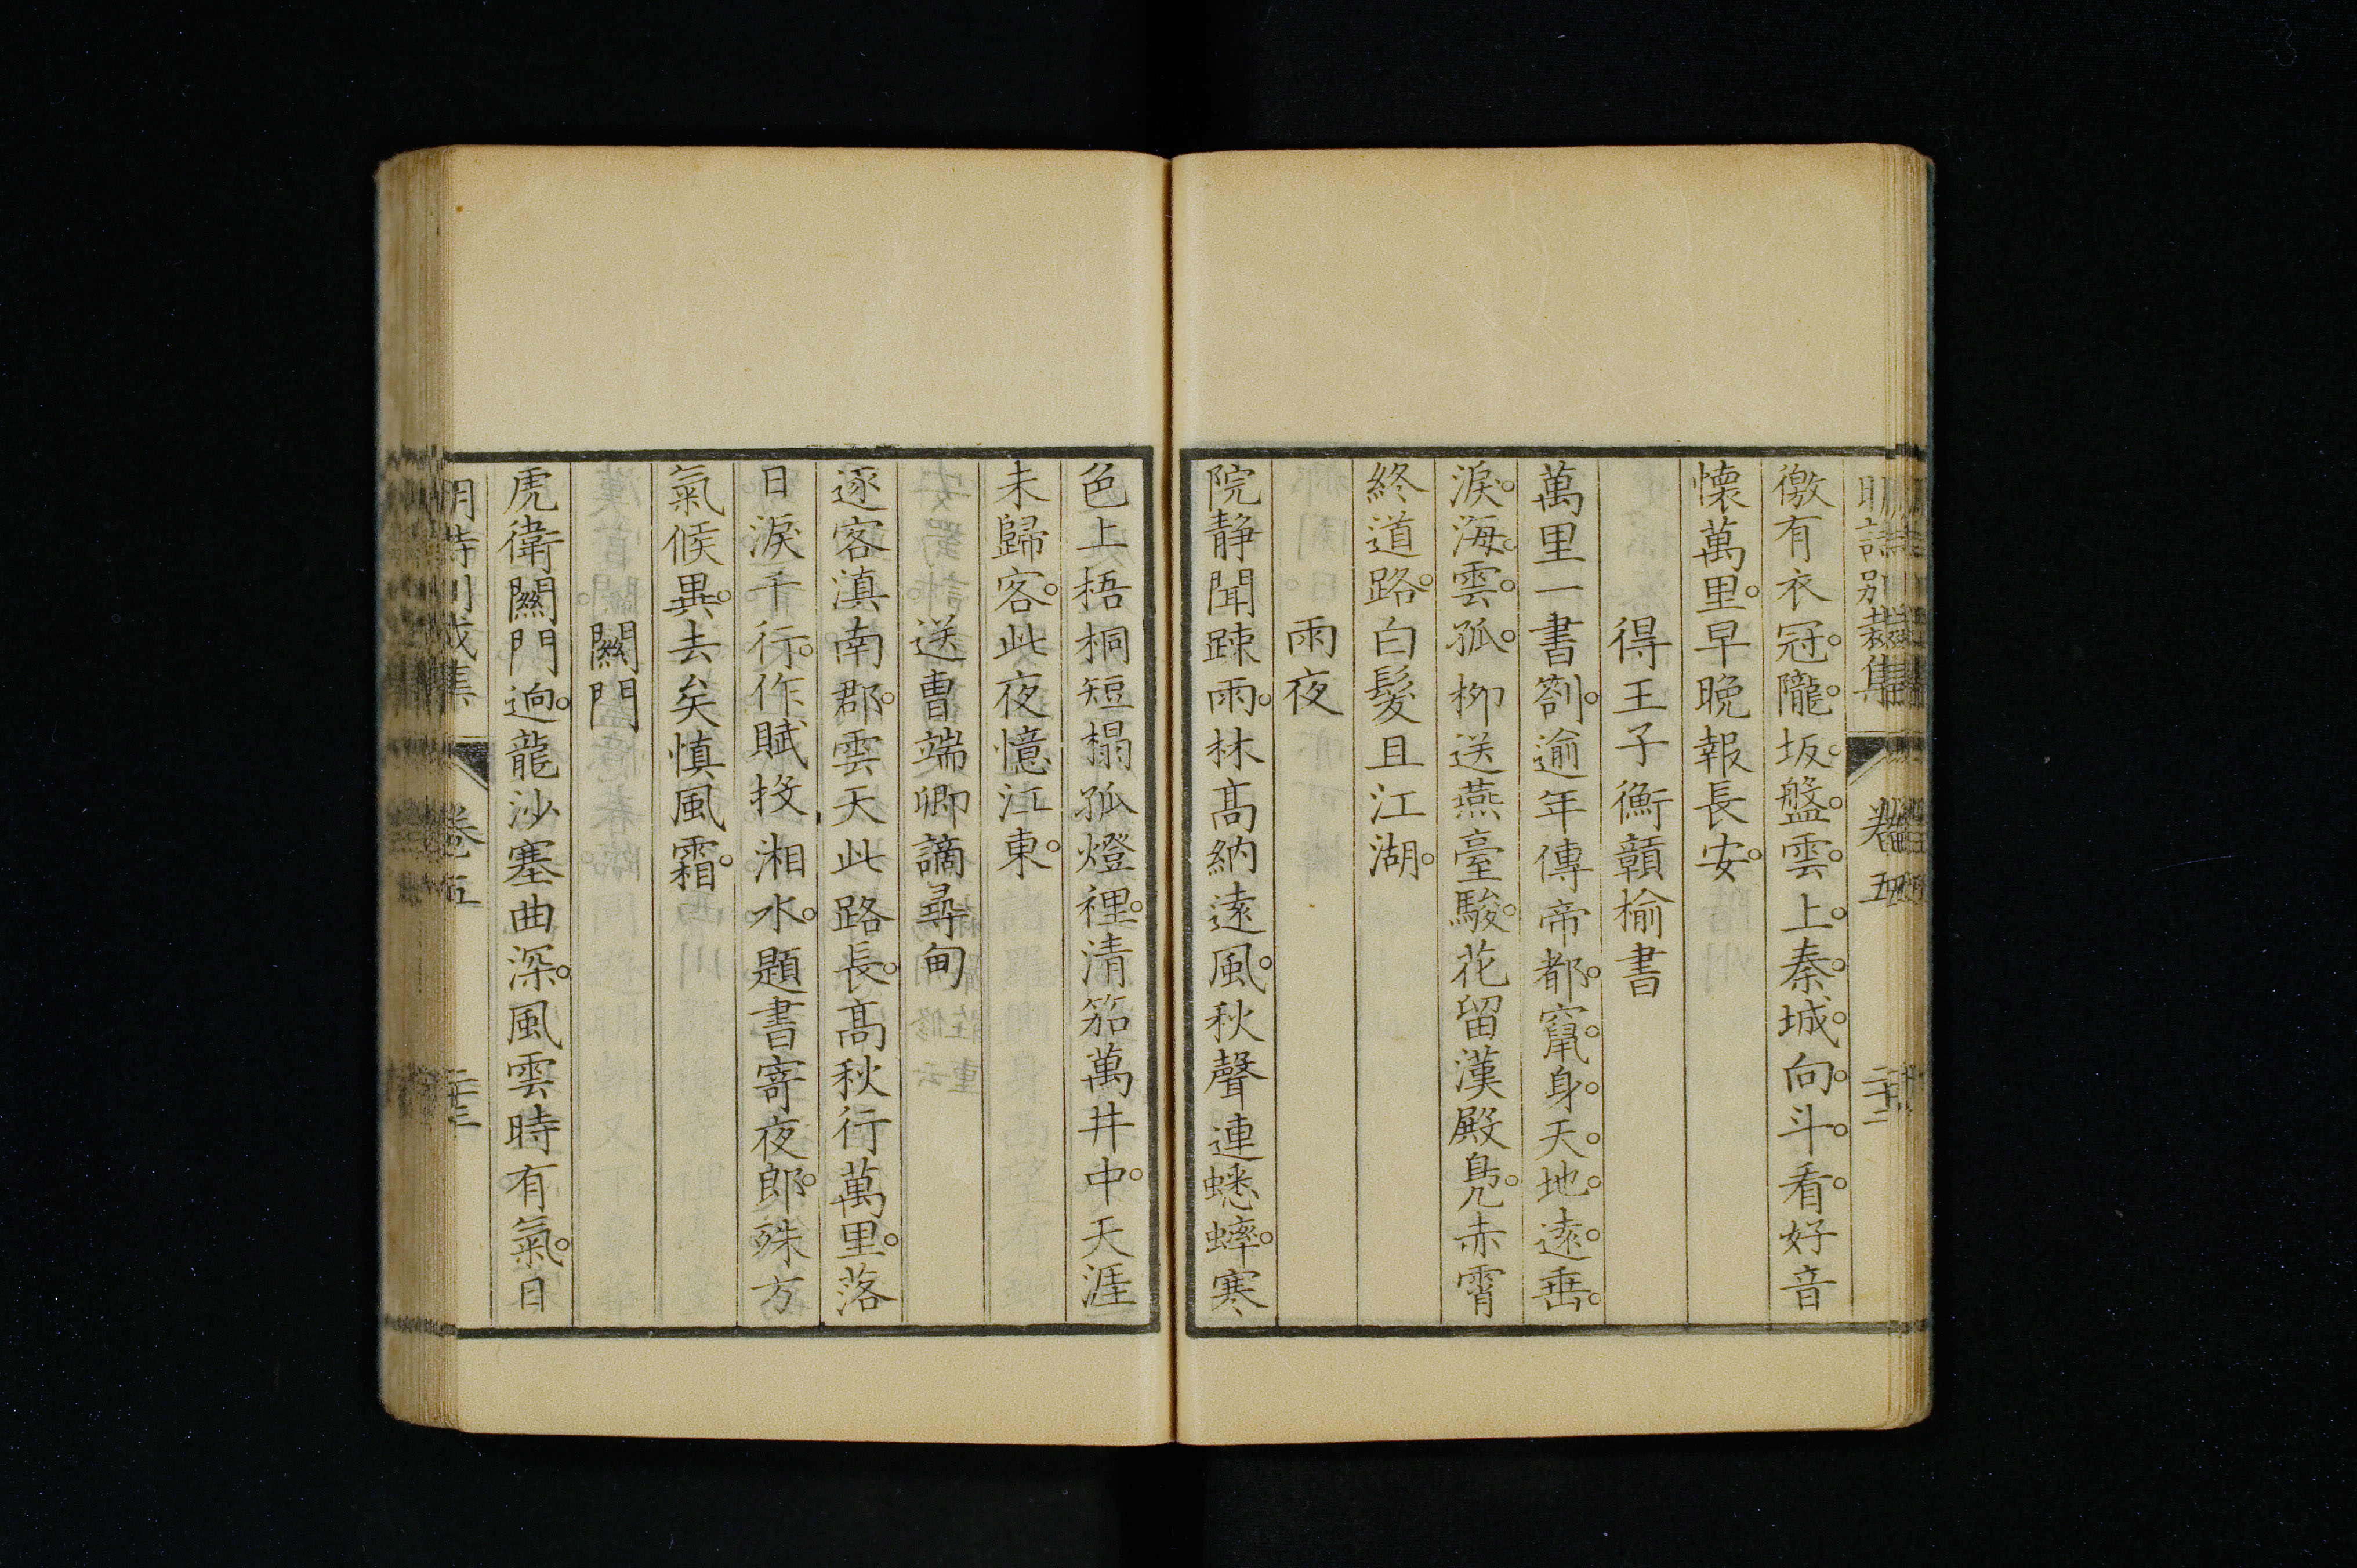 明詩別裁集 卷五 二十二
徼有衣冠隴坂盤雲上秦城向斗看好音
懷萬里早晚報長安
得王子衡贛榆書
萬里一書劄逾年傳帝都竄身天地遠垂
淚海雲孤柳送燕臺駿花留漢殿鳧赤霄
終道路白髮且江湖
雨夜
院靜聞踈雨林髙納遠風秋聲連蟋蟀寒
色上梧桐短榻孤燈裡清笳萬井中天涯
未歸客此夜憶江東
送曹端卿謫尋甸
逐客滇南郡雲天此路長髙秋行萬里落
日淚千行作賦投湘水題書寄夜郎殊方
氣候異去矣慎風霜
關門
虎衛關門迥龍沙塞曲深風雲時有氣日
卷五 二十三